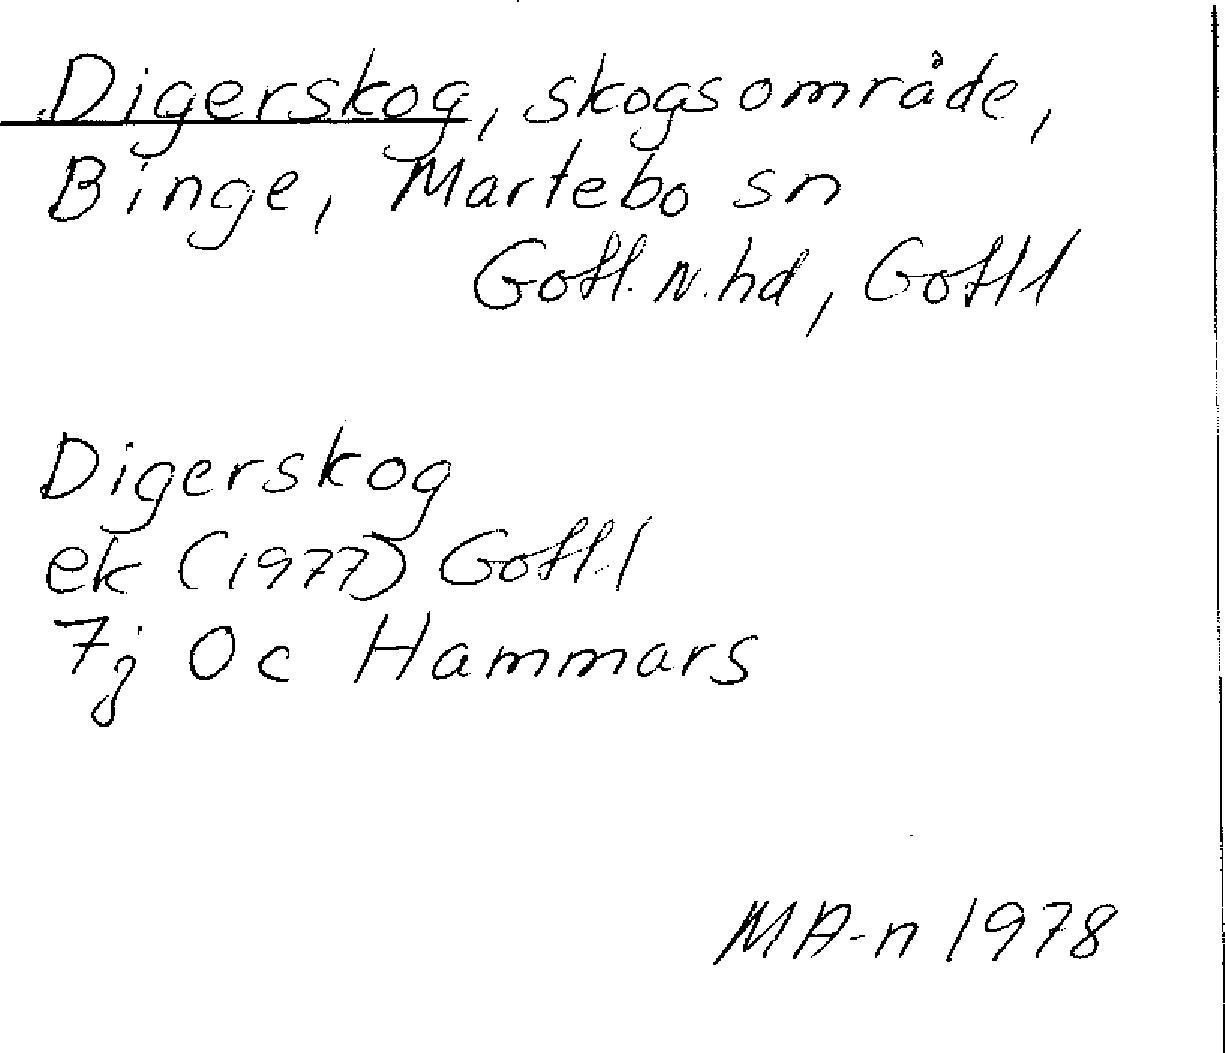 Digerskog, skogsområde,
Binge, Martebo sn
Gotl. n. hd, Gotl l
Digerskog
ek (1977) Gotl. l
7j Oc Hammars
MA-n 1978